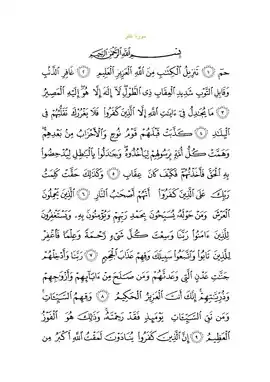 سورة غافر
بِسْمِ ٱللَّهِ ٱلرَّحْمَٰنِ ٱلرَّحِيمِ
حمٓ ۝١ تَنزِيلُ ٱلْكِتَٰبِ مِنَ ٱللَّهِ ٱلْعَزِيزِ ٱلْعَلِيمِ ۝٢ غَافِرِ ٱلذَّنۢبِ
وَقَابِلِ ٱلتَّوْبِ شَدِيدِ ٱلْعِقَابِ ذِى ٱلطَّوْلِ لَآ إِلَٰهَ إِلَّا هُوَ إِلَيْهِ ٱلْمَصِيرُ
۝٣ مَا يُجَٰدِلُ فِىٓ ءَايَٰتِ ٱللَّهِ إِلَّا ٱلَّذِينَ كَفَرُوا۟ فَلَا يَغْرُرْكَ تَقَلُّبُهُمْ فِى
ٱلْبِلَٰدِ ۝٤ كَذَّبَتْ قَبْلَهُمْ قَوْمُ نُوحٍ وَٱلْأَحْزَابُ مِنۢ بَعْدِهِمْ
وَهَمَّتْ كُلُّ أُمَّةٍۭ بِرَسُولِهِمْ لِيَأْخُذُوهُ وَجَٰدَلُوا۟ بِٱلْبَٰطِلِ لِيُدْحِضُوا۟
بِهِ ٱلْحَقَّ فَأَخَذْتُهُمْ فَكَيْفَ كَانَ عِقَابِ ۝٥ وَكَذَٰلِكَ حَقَّتْ كَلِمَتُ
رَبِّكَ عَلَى ٱلَّذِينَ كَفَرُوٓا۟ أَنَّهُمْ أَصْحَٰبُ ٱلنَّارِ ۝٦ ٱلَّذِينَ يَحْمِلُونَ
ٱلْعَرْشَ وَمَنْ حَوْلَهُۥ يُسَبِّحُونَ بِحَمْدِ رَبِّهِمْ وَيُؤْمِنُونَ بِهِۦ وَيَسْتَغْفِرُونَ
لِلَّذِينَ ءَامَنُوا۟ رَبَّنَا وَسِعْتَ كُلَّ شَىْءٍ رَّحْمَةً وَعِلْمًا فَٱغْفِرْ
لِلَّذِينَ تَابُوا۟ وَٱتَّبَعُوا۟ سَبِيلَكَ وَقِهِمْ عَذَابَ ٱلْجَحِيمِ ۝٧ رَبَّنَا وَأَدْخِلْهُمْ
جَنَّٰتِ عَدْنٍ ٱلَّتِى وَعَدتَّهُمْ وَمَن صَلَحَ مِنْ ءَابَآئِهِمْ وَأَزْوَٰجِهِمْ
وَذُرِّيَّٰتِهِمْ إِنَّكَ أَنتَ ٱلْعَزِيزُ ٱلْحَكِيمُ ۝٨ وَقِهِمُ ٱلسَّيِّـَٔاتِ
وَمَن تَقِ ٱلسَّيِّـَٔاتِ يَوْمَئِذٍ فَقَدْ رَحِمْتَهُۥ وَذَٰلِكَ هُوَ ٱلْفَوْزُ
ٱلْعَظِيمُ ۝٩ إِنَّ ٱلَّذِينَ كَفَرُوا۟ يُنَادَوْنَ لَمَقْتُ ٱللَّهِ أَكْبَرُ مِن